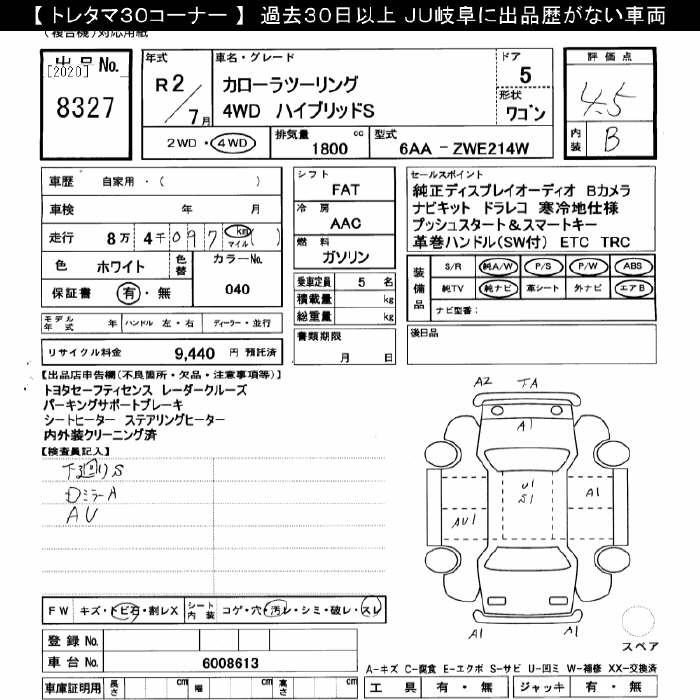 【 トレタマ30コーナー 】 過去30日以上 JU岐阜に出品歴がない車両
(複合機)対応用紙
出品No.
[2020]
8327
年式
R2/7月
車名・グレード
カローラツーリング
4WD ハイブリッドS
ドア
5
形状
ワゴン
2WD・4WD
排気量 1800 cc
型式 6AA - ZWE214W
評価点
4.5
内装 B
車歴 自家用・( )
車検 年 月
走行 8万 4千 097 km マイル ( )
色 ホワイト 色替
カラーNo. 040
保証書 有・無
モデル年式 年 ハンドル 左・右 ディーラー・並行
リサイクル料金 9,440 円 預託済
シフト
FAT
冷房
AAC
燃料
ガソリン
乗車定員 5 名
積載量 kg
総重量 kg
書類期限
月 日
セールスポイント
純正ディスプレイオーディオ Bカメラ
ナビキット ドラレコ 寒冷地仕様
プッシュスタート&スマートキー
革巻ハンドル(SW付) ETC TRC
装備品
S/R 純A/W P/S P/W ABS
純TV 純ナビ 革シート 外ナビ エアB
ナビ型番:
後日品
【出品店申告欄(不良箇所・欠品・注意事項等)】
トヨタセーフティセンス レーダークルーズ
パーキングサポートブレーキ
シートヒーター ステアリングヒーター
内外装クリーニング済
【検査員記入】
下廻りS
Dミラー A
AU
A2 TA
A1
U1
S1
A1
AU1
A1 A1
スペア
FW キズ・トビ石・割レX シート内装 コゲ・穴・汚レ・シミ・破レ・スレ
登録 No.
車台 No. 6008613
車庫証明用 長さ cm 幅 cm 高さ cm
A-キズ C-腐食 E-エクボ S-サビ U-凹ミ W-補修 XX-交換済
工具 有・無 ジャッキ 有・無